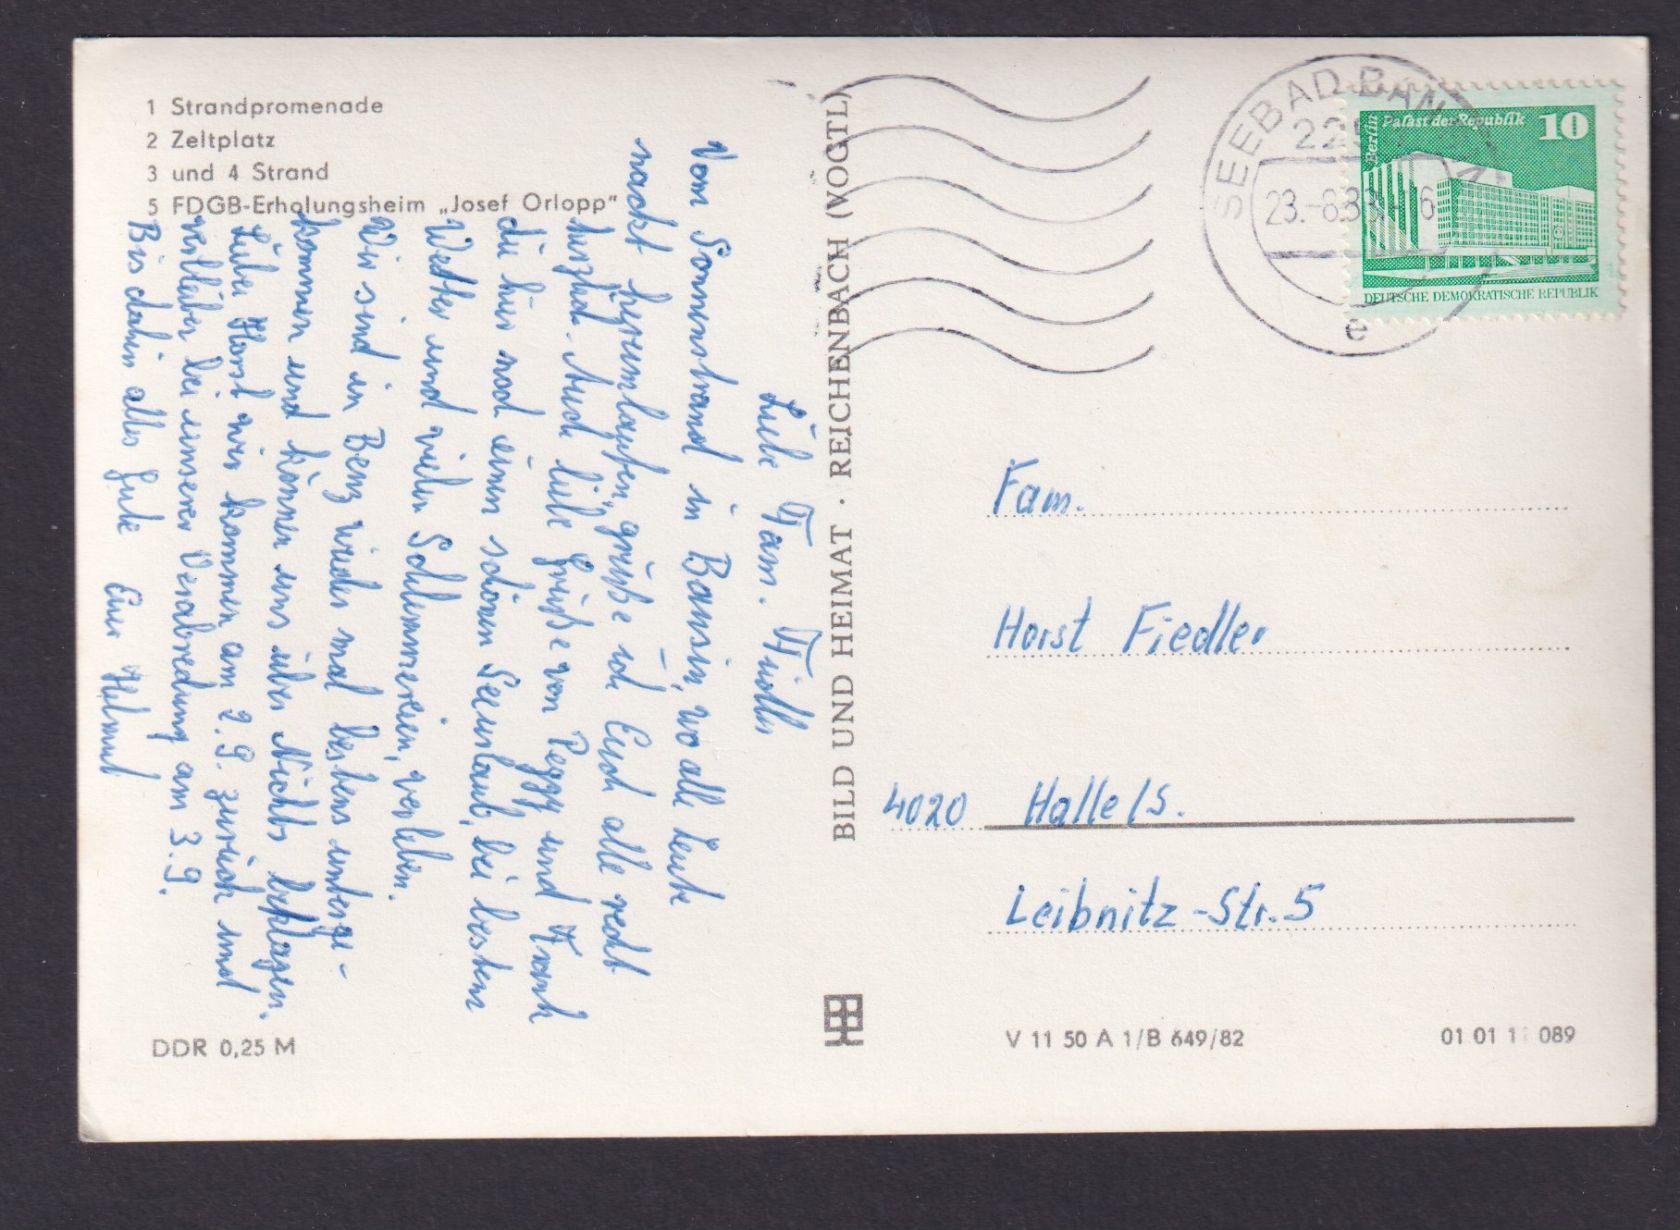 1 Strandpromenade
2 Zeltplatz
3 und 4 Strand
5 FDGB-Erholungsheim „Josef Orlopp"
Liebe Fam. Fiedler
Vom Sonnenstrand in Bansin, wo alle Leute
nackt herumlaufen, grüße ich Euch alle recht
herzlich. Auch liebe Grüße von Peggy und Frank
die hier noch einen schönen Seeurlaub, bei bestem
Wetter und vielen Schlemmereien, verleben.
Wir sind in Benz wieder mal bestens unterge-
kommen und können uns über Nichts beklagen.
Lieber Horst wir kommen am 2.9. zurück und
verbleiben bei unserer Verabredung am 3.9.
Bis dahin alles Gute Euer Helmut
DDR 0,25 M
BILD UND HEIMAT · REICHENBACH (VOGTL)
SEEBAD BANSIN
225
23.-8.83-16
e
Berlin
Palast der Republik
10
DEUTSCHE DEMOKRATISCHE REPUBLIK
Fam.
Horst Fiedler
4020 Halle/S.
Leibnitz-Str. 5
V 11 50 A 1/B 649/82
01 01 1 089